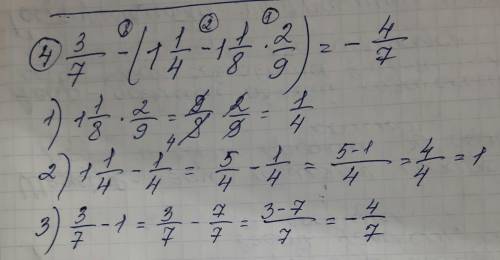 ④ 3/7 - (1 1/4 - 1 1/8 · 2/9) = - 4/7
③ ② ①
1) 1 1/8 · 2/9 = 9/8 · 2/9 = 1/4
4
2) 1 1/4 - 1/4 = 5/4 - 1/4 = (5-1)/4 = 4/4 = 1
3) 3/7 - 1 = 3/7 - 7/7 = (3-7)/7 = - 4/7